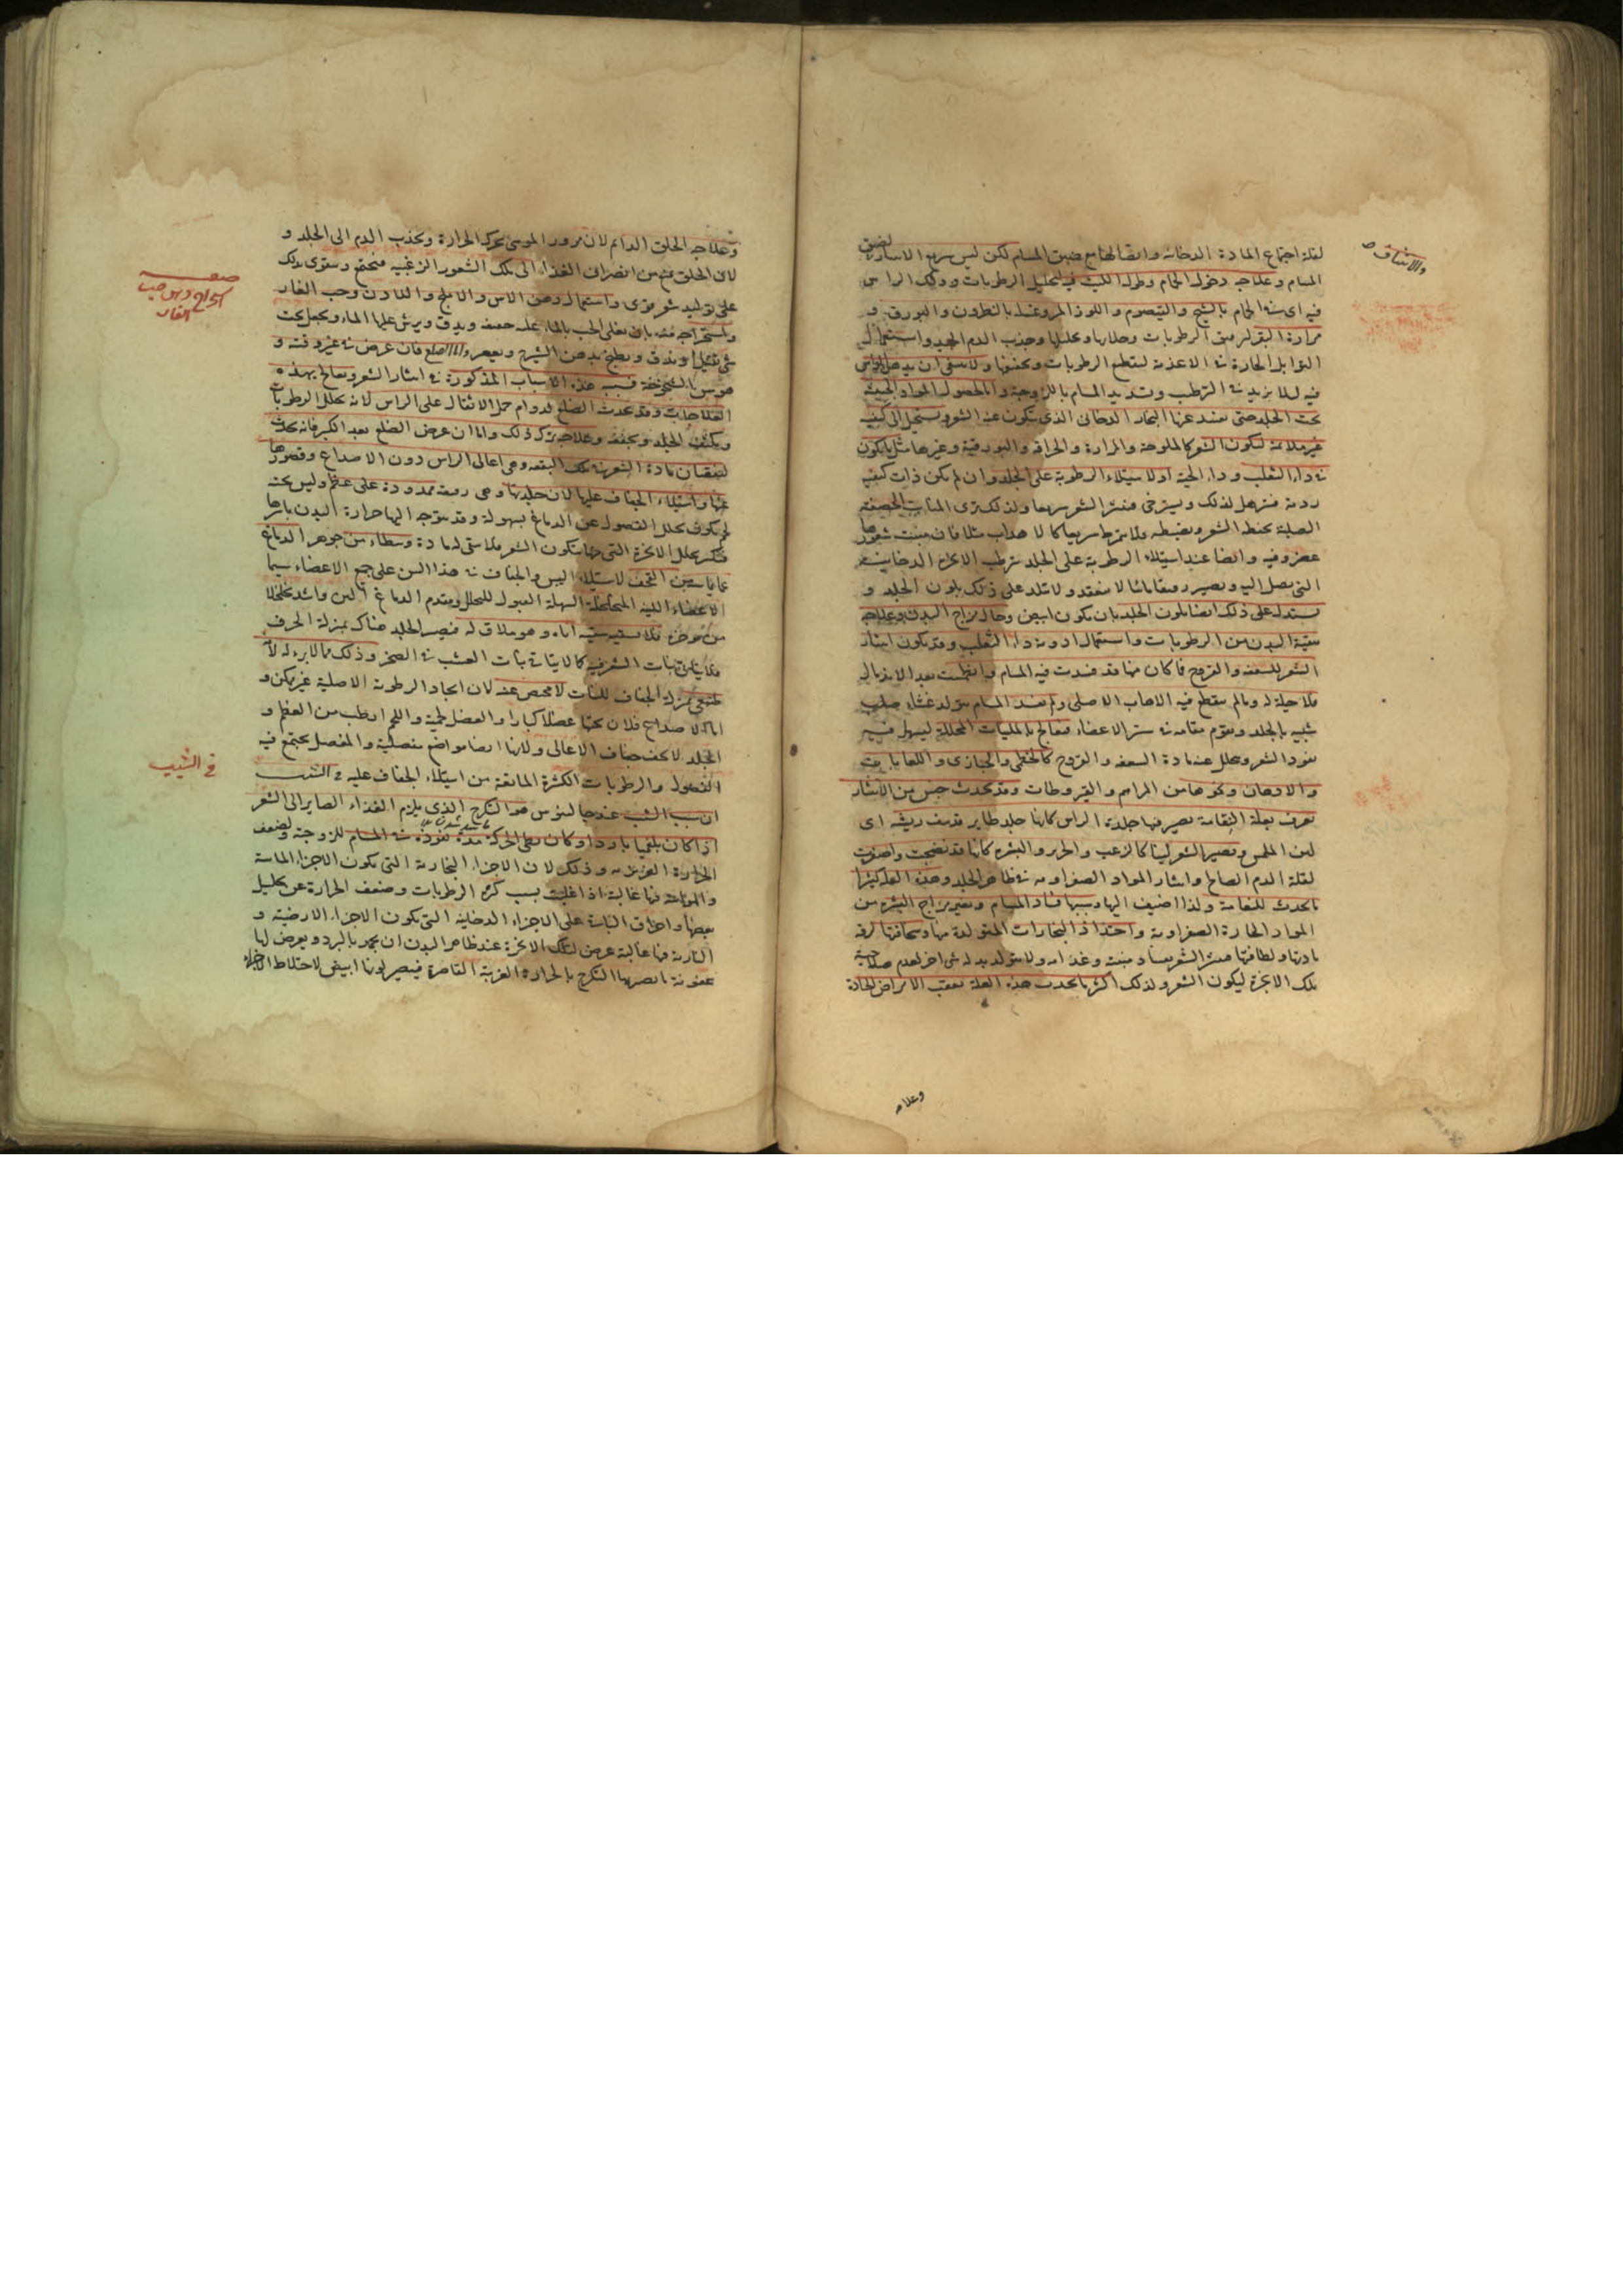 لقلة اجتماع المادة الدخانية وايضا لها مع ضيق المسام لكن ليس سرعة الانتثار لضيق
المسام وعلاجه دخول الحمام وطول اللبث فيه لتحليل الرطوبات ودلك الراس
فيه اى فى الحمام بالشيح والقيصوم واللوز المر وغسله بالنطرون والبورق و
مرارة البقر لترقيق الرطوبات وجلايها وتحليلها وجذب الدم الجيد واستعمال
التوابل الحارة فى الاغذية لتقطع الرطوبات وتجففها ولا ينبغى ان يدهن الراس
فيه ليلا يزيد فى الترطيب وتسديد المسام باللزوجة واما لحصول المواد الخبيثة
تحت الجلد حتى يفسد عنها البخار الدخانى الذى يتكون عنه الشعر ويستحيل الى كيفية
غير ملايمة لتكون الشعر كالملوحة والمرارة والحرافة والبورقية وغيرها مثل ما يكون
فى داء الثعلب وداء الحية اولاستيلاء الرطوبة على الجلد وان لم يكن ذات كيفية
ردية فيترهل لذلك ويسترخى فينتثر الشعر سريعا ولذلك ترى المنابت الحصيفة
الصلبة تحفظ الشعر وتضبطه ولا تمرط سريعا كالاهداب مثلا فان منبت شعورها
غضروفية وايضا عند استيلاء الرطوبة على الجلد ترطب الابخرة الدخانية
التى تصل اليه ويصير رقيقا مائيا لا ينعقد ولا يتلبد على ذلك بلون الجلد و
يستدل على ذلك ايضا بلون الجلد بان يكون ابيض وحال مزاج البدن وعلاجه
تنقية البدن من الرطوبات واستعمال ادوية داء الثعلب وقد يكون انتثار
الشعر للسعفة والقروح فما كان منها قد فسدت فيه المسام وانطمست بعد الاندمال
فلا حيلة له وما لم ينقطع فيه الاهاب الاصلى ولم تفسد المسام يتولد غشاء صلب
شبيه بالجلد ويقوم مقامه فى ستر الاعضاء فيعالج بالملينات المحللة ليسهل فيه
نفوذ الشعر ويحلل عنه مادة السعفة والقروح كالخطمى والخبازى واللعابات
والادهان ونحوها من المراهم والقيروطات وقد يحدث جنس من الانتثار
تعرف بعلة النعامة تصير فيها جلدة الراس كانها جلد طاير قد نتف ريشه اى
لين الملمس ويصير الشعر لينا كالزغب والحرير والبشرة كانها قد نضجت واصفرت
لقلة الدم الصالح وانتثار المواد الصفراوية فى ظاهر الجلد وهذه العلة كثيرا
ما تحدث للنعامة ولذا اضيف اليها وسببها فساد المسام وتغير مزاج البشرة من
المواد الحارة الصفراوية واحتداد البخارات المتولدة منها وسخافتها لرقة
مادتها ولطافتها فينتثر الشعر بفساد منبته وغذايه ولا يتولد بدله شى اخر لعدم صلاحية
تلك الابخرة لتكون الشعر ولذلك اكثر ما تحدث هذه العلة بعقب الامراض الحادة
وعلاجه
وعلاجه الحلق الدائم لان مرور الموسى يحرك الحرارة ويجذب الدم الى الجلد و
لان الحلق يمنع من انصراف الغذاء الى تلك الشعور الزغبية فيجتمع ويتقوى بذلك
على توليد شعر قوى واستعمال دهن الاس والاملج واللادن وحب الغار
واستخراجه منه بان يغلى الحب بالماء غلية خفيفة ويدق ويرش عليها الماء ويجعل تحت
شى ثقيل او يدق ويطبخ بدهن الشيرج ويعصر واما الصلع فان عرض فى غير وقته و
هو سن الشيخوخة فسببه هذه الاسباب المذكورة فى انتثار الشعر ويعالج بهذه
العلاجات وقد يحدث الصلع لدوام حمل الاثقال على الراس لانه يحلل الرطوبات
ويكثف الجلد ويجففه وعلاجه ترك ذلك واما ان عرض الصلع بعد الكبر فانه يحدث
لنقصان مادة الشعر فى تلك البقعة وهى اعالى الراس دون الاصداغ وقصورها
عنها واستيلاء الجفاف عليها لان جلدتها وهى رقيقة ممدودة على عظم وليس تحته
لحم يكون تحلل الفضول عن الدماغ بسهولة وقد يتوجه اليها حرارة البدن باسرها
فيكثر تحلل الابخرة التى منها يتكون الشعر فلا يبقى له مادة وسطاء من جوهر الدماغ
عما يماسه من القحف لاستيلاء اليبس والجفاف فى هذا السن على جميع الاعضاء سيما
الاعضاء اللينة المتخلخلة السهلة القبول للتحلل ومقدم الدماغ الين واشد تخلخلا
من مؤخره فلا يسقيه سقيه اياه وهو ملاق له فيصير الجلد هناك بمنزلة الخزف
فلا يتاتى نبات الشعر فيه كما لا يتاتى نبات العشب فى الصخر وذلك مما لا برء له لانه
طبيعى بمنزلة الجفاف للنبات لا محيص عنه لان ايجاد الرطوبة الاصلية غير ممكن و
اما الاصداغ فلان تحتها عضلا كبارا والعضل لحمية واللحم ارطب من العظم و
الجلد لا يجف جفاف الاعالى ولانها ايضا مواضع مفصلية والمفصل يجتمع فيه
الفضول والرطوبات الكثيرة المانعة من استيلاء الجفاف عليه فى الشيب
ان سبب الشيب عند جالينوس هو التكرج الذى يلزم الغذاء الصاير الى الشعر
اذا كان بلغميا باردا وكان بطى الحركة مدة نفوذه فى المسام للزوجته ولضعف
الحرارة الغريزية وذلك لان الاجزاء البخارية التى يكون الاجزاء المائية
والهوائية فيها غالبة اذا غلبت بسبب كثرة الرطوبات وضعف الحرارة عن تحليل
بعضها واحراق الباقية على الاجزاء الدخانية التى يكون الاجزاء الارضية و
النارية فيها غالبة عرض لتلك الابخرة عند ظاهر البدن ان تجمد بالبرد ويعرض لها
عفونة ما يصير بها التكرج بالحرارة الغريبة القاصرة فيصير لونها ابيض لاختلاط الاجزاء
فى الشيب